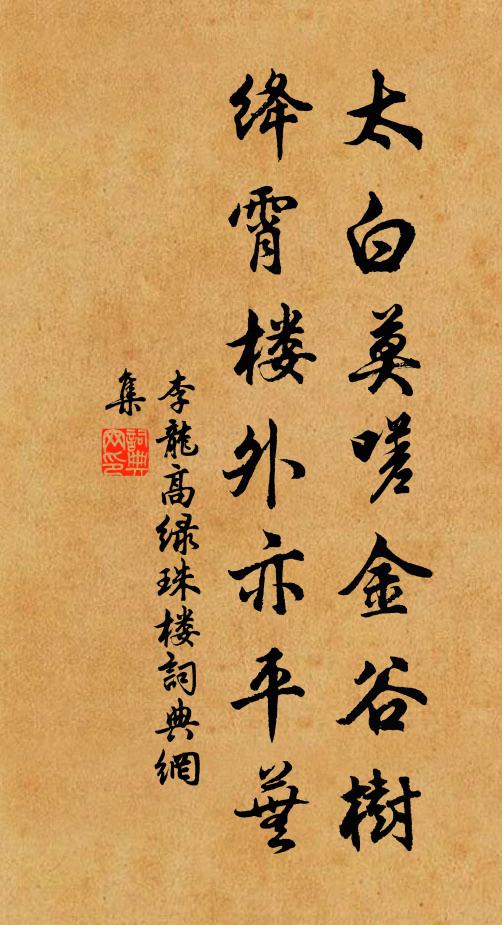 太白莫嗟金谷樹
绛霄楼外亦平蕪
李龍高绿珠楼詞典網
集
詞典
网印